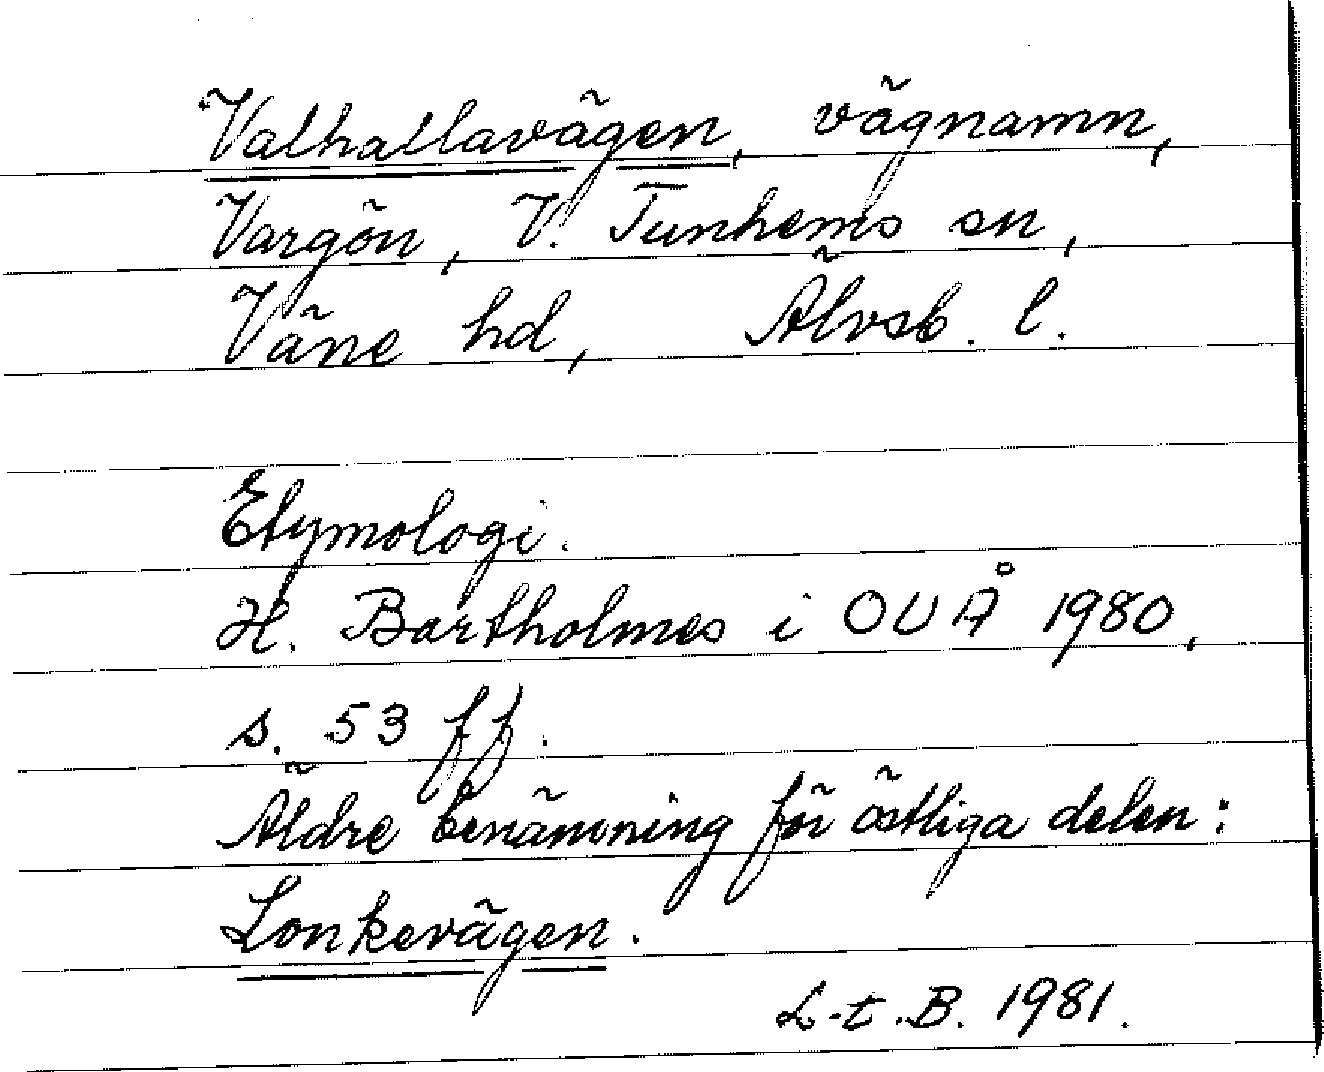 Valhallavägen, vägnamn,
Vargön, V. Tunhems sn,
Väne hd, Älvsb. l.
Etymologi.
H. Bartholmes i OUÅ 1980,
s. 53 ff.
Äldre benämning för östliga delen:
Lonkevägen.
L-t. B. 1981.